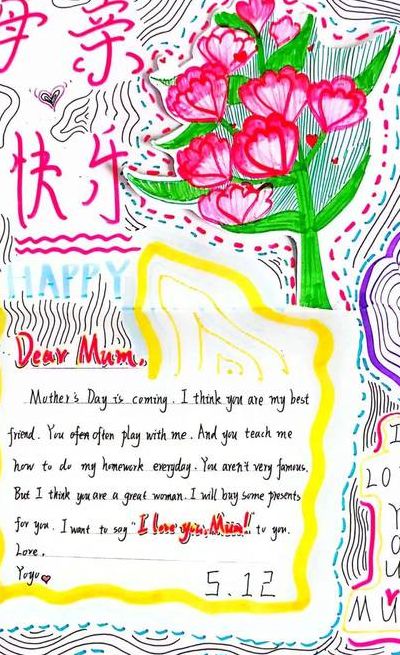 母亲
快乐
HAPPY
Dear Mum,
Mother's Day is coming. I think you are my best
friend. You ofen often play with me. And you teach me
how to do my homework everyday. You aren't very famous.
But I think you are a great woman. I will buy some presents
for you. I want to say "I love you, Mum!" to you.
Love,
Yoyo
5.12
I
LO
Y
O
U
MU